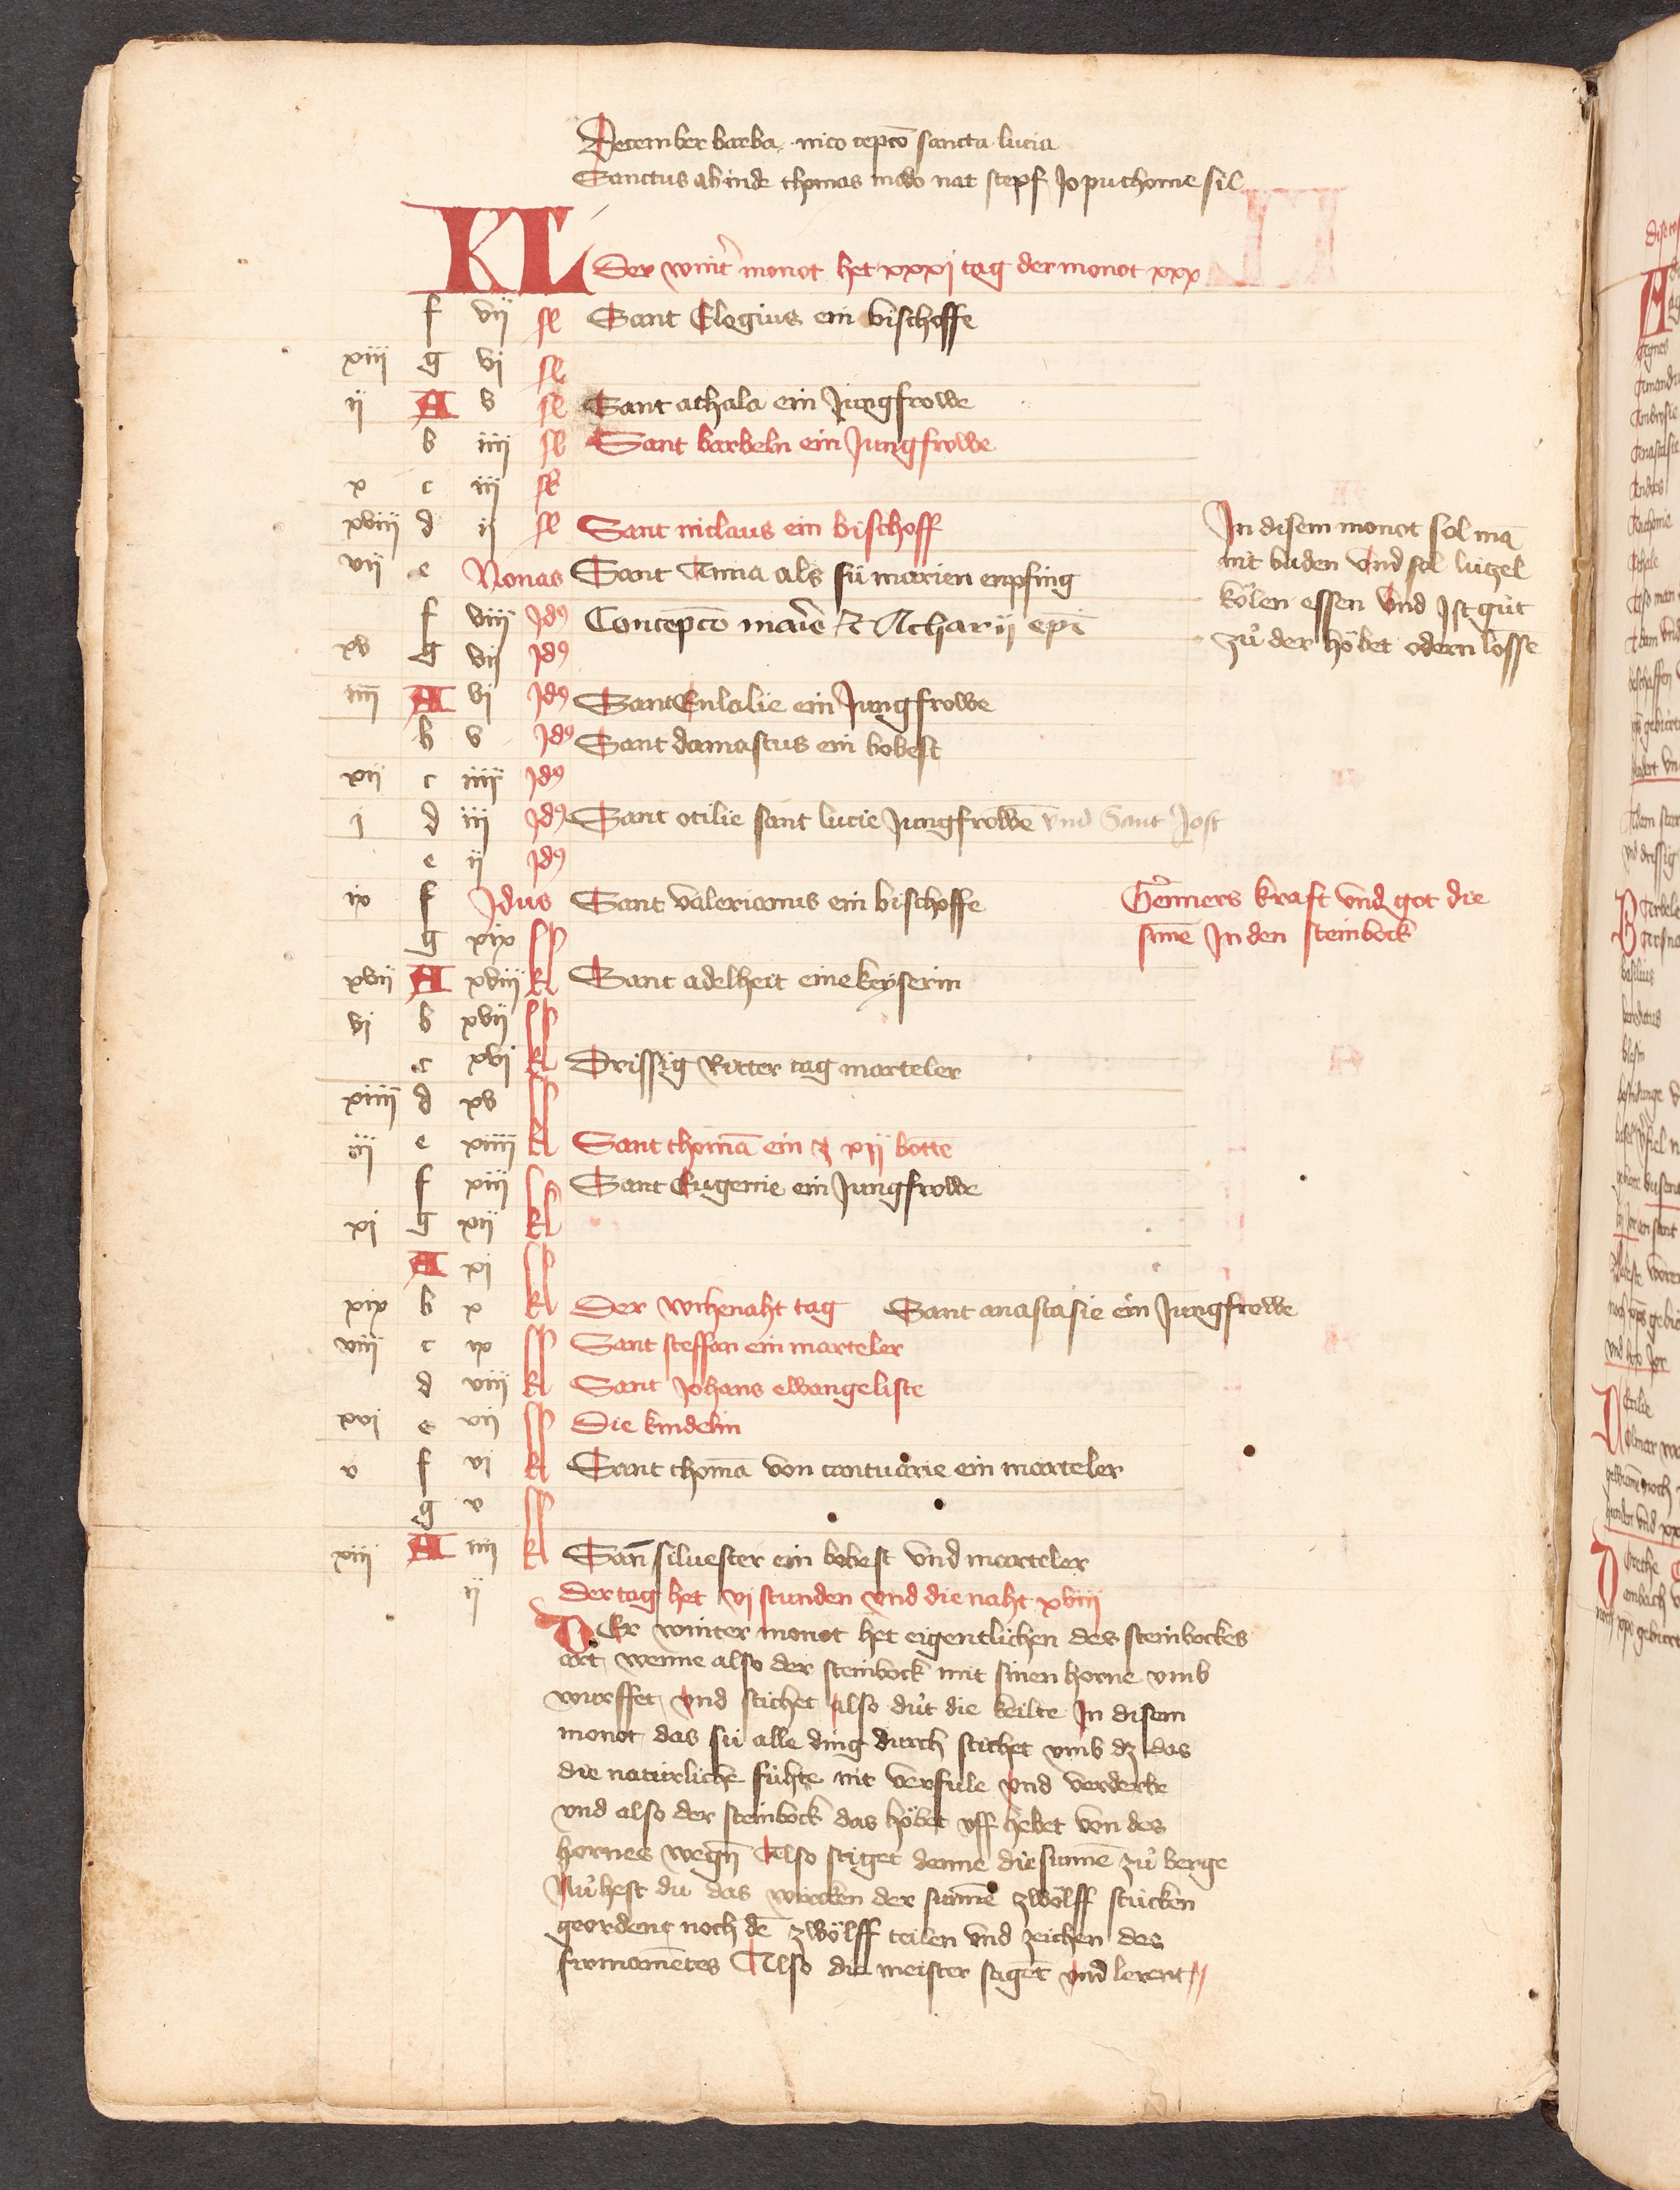 December barba nico cepco sancta lucia
Sanctus ab inde thomas modo nat steph Jo pu thome sil
KL Der wint monot het xxxj tag der monot xxx
f vij Sant Elogius ein bischoffe
xiij g vj
ij A v Sant athala ein Jungfrowe
b iiij Sant barbeln ein Jungfrowe
x c iij
xviij d ij Sant niclaus ein bischoff
vij e Nonas Sant Anna als sü marien enpfing
f viij Jdꝯ Concepco marie Et Acharij epi
xv g vij Jdꝯ
iiij A vj Jdꝯ Sant Eulalie ein Jungfrowe
b v Jdꝯ Sant damascus ein bobest
xij c iiij Jdꝯ
j d iij Jdꝯ Sant otilie sant lucie Jungfrowē vnd Sant Jost
e ij Jdꝯ
ix f Jdus Sant valerianus ein bischoffe
g xix
xvij A xviij kl Sant adelheit eine keyserin
vj b xvij
c xvj kl Drissig Ritter tag marteler
xiiij d xv
iij e xiiij kl Sant thomā ein d xij botte
f xiij Sant Eugenie ein Jungfrowe
xj g xij kl
A xj
xix b x kl Der wihenaht tag Sant anastasie ein Jungfrowe
viij c ix Sant steffan ein marteler
d viij kl Sant Johans ewangeliste
xvj e vij Die kindelin
v f vj kl Sant thomā von cantuarie ein marteler
g v
xiij A iiij kl San siluester ein bobest vnd marteler
ij der tag het vj stunden vnd die naht xviij
In disem monot sol mā
nit baden vnd sol lützel
kölen essen vnd Jst gůt
zů der höbet odern lossē
Genners kraft vnd got die
sunē In den steinbock
DEr winter monot het eigentlichen des steinbockes
art wenne also der steinbock mit sinen horne vmb
wurffet vnd stichet also důt die keilte In disem
monot das sü alle ding durch stichet vmb dz das
die natürliche fühte nit verfule vnd verderbe
vnd also der steinbock das höbet vff hebet von des
hornes wegn Also stiget denne die sunnē zů berge
Nů hest du das würcken der sunnē zwölff stücken
geordent noch dē zwölff teilen vnd zeichen des
firmamētes Also die meister sagēt vnd lerent